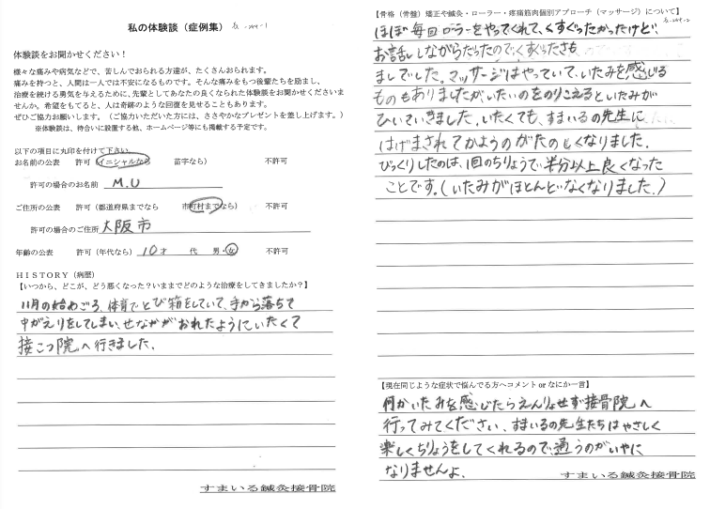 私の体験談（症例集）
体験談をお聞かせください！
様々な痛みや病気などで、苦しんでおられる方達が、たくさんおられます。
痛みを持つと、人間は一人では不安になるものです。そんな痛みをもつ後輩たちを励まし、
治療を続ける勇気を与えるために、先輩としてあなたの良くなられた体験談をお聞かせくださいま
せんか。希望をもてると、人は奇跡のような回復を見せることもあります。
ぜひご協力お願いします。（ご協力いただいた方には、ささやかなプレゼントを差し上げます。）
※体験談は、待合いに設置する他、ホームページ等にも掲載する予定です。
以下の項目に丸印を付けて下さい。
お名前の公表　許可（イニシャルなら　苗字なら）　不許可
許可の場合のお名前　M.U
ご住所の公表　許可（都道府県までなら　市町村までなら）　不許可
許可の場合のご住所　大阪市
年齢の公表　許可（年代なら）　10才　代　男・女　不許可
HISTORY（病歴）
【いつから、どこが、どう悪くなった？いままでどのような治療をしてきましたか？】
11月の始めごろ、体育でとび箱をしていて、手から落ちて
中がえりをしてしまい、せなかがおれたようにいたくて
接こつ院へ行きました。
すまいる鍼灸接骨院
【骨格（骨盤）矯正や鍼灸・ローラー・疼痛筋肉個別アプローチ（マッサージ）について】
ほぼ毎回ローラーをやってくれて、くすぐったかったけど、
お話ししながらだったので、くすぐったさも
ましでした。マッサージはやっていて、いたみを感じる
ものもありましたが、いたいのをのりこえるといたみが
ひいていきました。いたくても、すまいるの先生に
はげまされてかようのがたのしくなりました。
びっくりしたのは、1回のちりょうで半分以上良くなった
ことです。（いたみがほとんどなくなりました。）
【現在同じような症状で悩んでる方へコメント or なにか一言】
何かいたみを感じたらえんりょせず接骨院へ
行ってみてください。すまいるの先生たちはやさしく
楽しくちりょうをしてくれるので、通うのがいやに
なりませんよ。
すまいる鍼灸接骨院